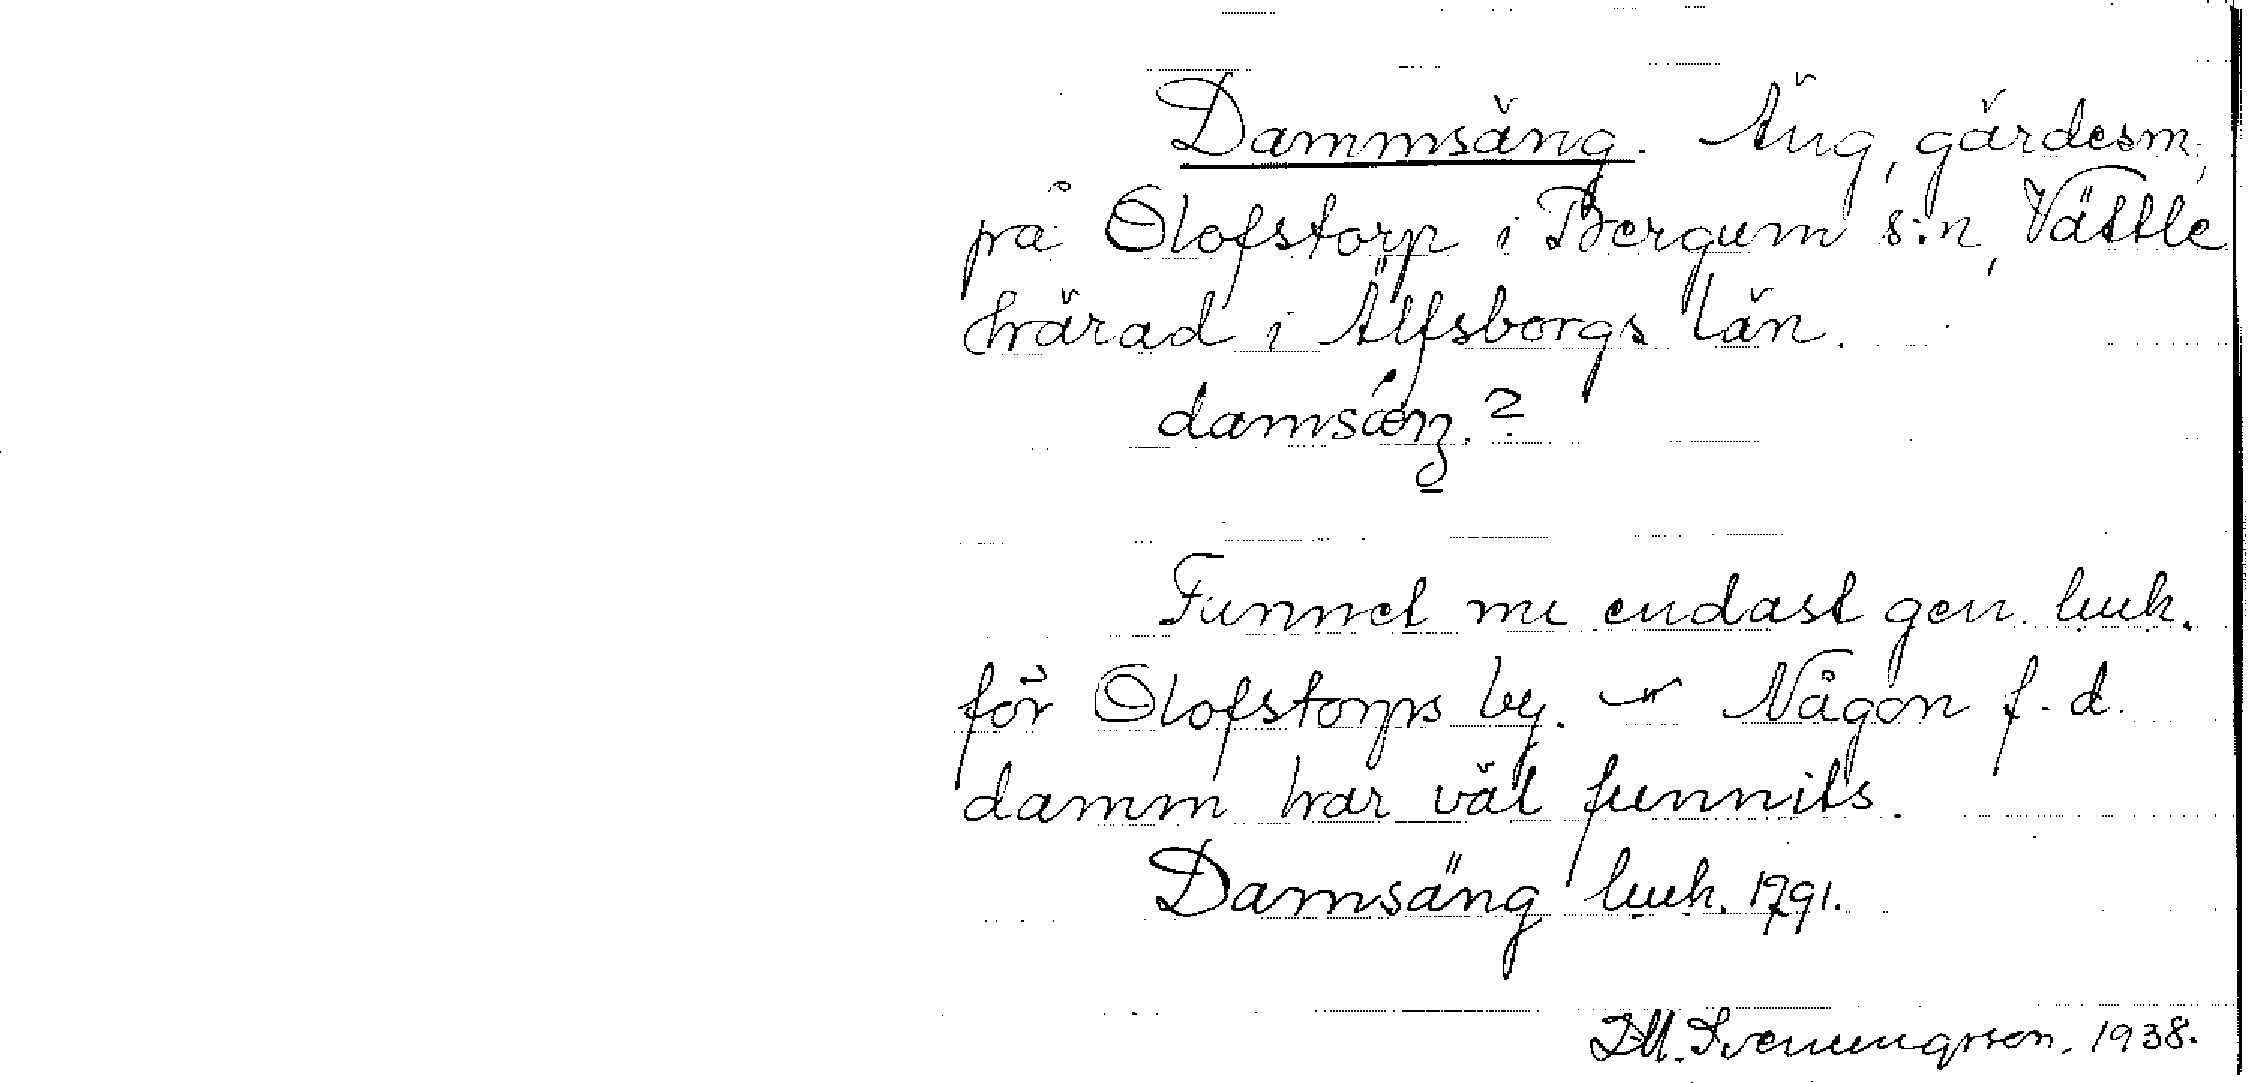 Dammsäng. Äng, gärdesm,
på Olofstorp i Bergum s:n, Vättle
härad i Älfsborgs län.
damsäŋ. ?
Funnet nu endast gen. luuk.
för Olofstorps by. - Någon f. d.
damm har väl funnits.
Damsäng luuk. 1791.
D.M. Svenungsson. 1938.